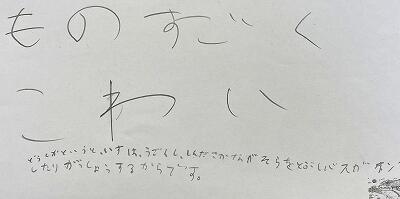 ものすごく
こわい
どうしてかというと、いすは、うごくし、しんださかなが そらをとぶし、バスがオン
したり がっしょうするからです。